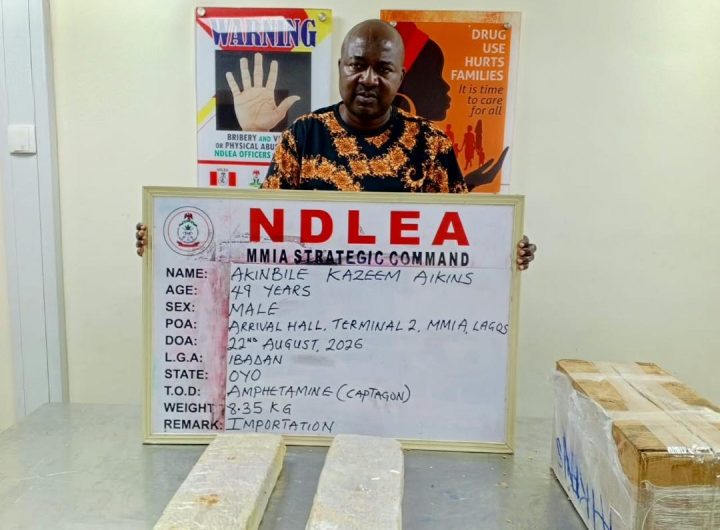 WARNING
BRIBERY AND
OR PHYSICAL
NDLEA OFFICERS
NDLEA
DRUG
USE
HURTS
FAMILIES
It is time
to care
for all
NDLEA
MMIA STRATEGIC COMMAND
NAME: AKINBILE KAZEEM AIKINS
AGE: 49 YEARS
SEX: MALE
POA: ARRIVAL HALL, TERMINAL 2, MMIA, LAGOS
DOA: 22ND AUGUST, 2026
L.G.A: IBADAN
STATE: OYO
T.O.D: AMPHETAMINE (CAPTAGON)
WEIGHT 8.35 KG
REMARK: IMPORTATION